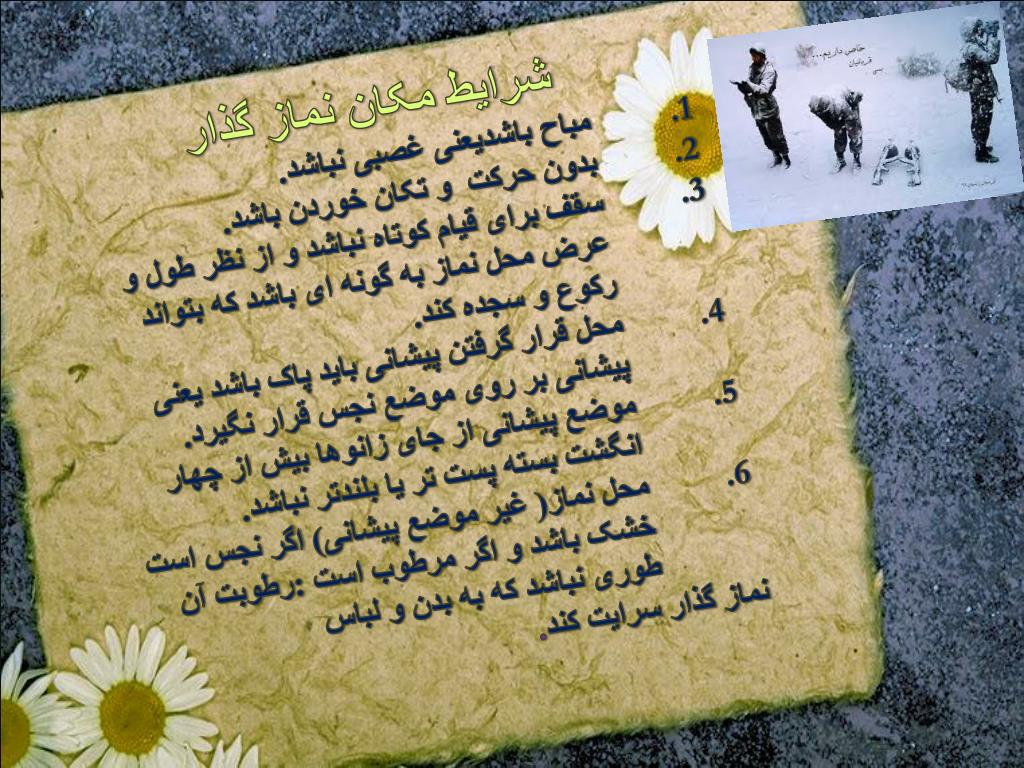 شرایط مکان نماز گذار
1. مباح باشدیعنی غصبی نباشد.
2. بدون حرکت و تکان خوردن باشد.
3. سقف برای قیام کوتاه نباشد و از نظر طول و
عرض محل نماز به گونه ای باشد که بتواند
رکوع و سجده کند.
4. محل قرار گرفتن پیشانی باید پاک باشد یعنی
پیشانی بر روی موضع نجس قرار نگیرد.
5. موضع پیشانی از جای زانوها بیش از چهار
انگشت بسته پست تر یا بلندتر نباشد.
6. محل نماز( غیر موضع پیشانی) اگر نجس است
خشک باشد و اگر مرطوب است :رطوبت آن
طوری نباشد که به بدن و لباس
نماز گذار سرایت کند.
خاص داریم...
قربانیان
بسی